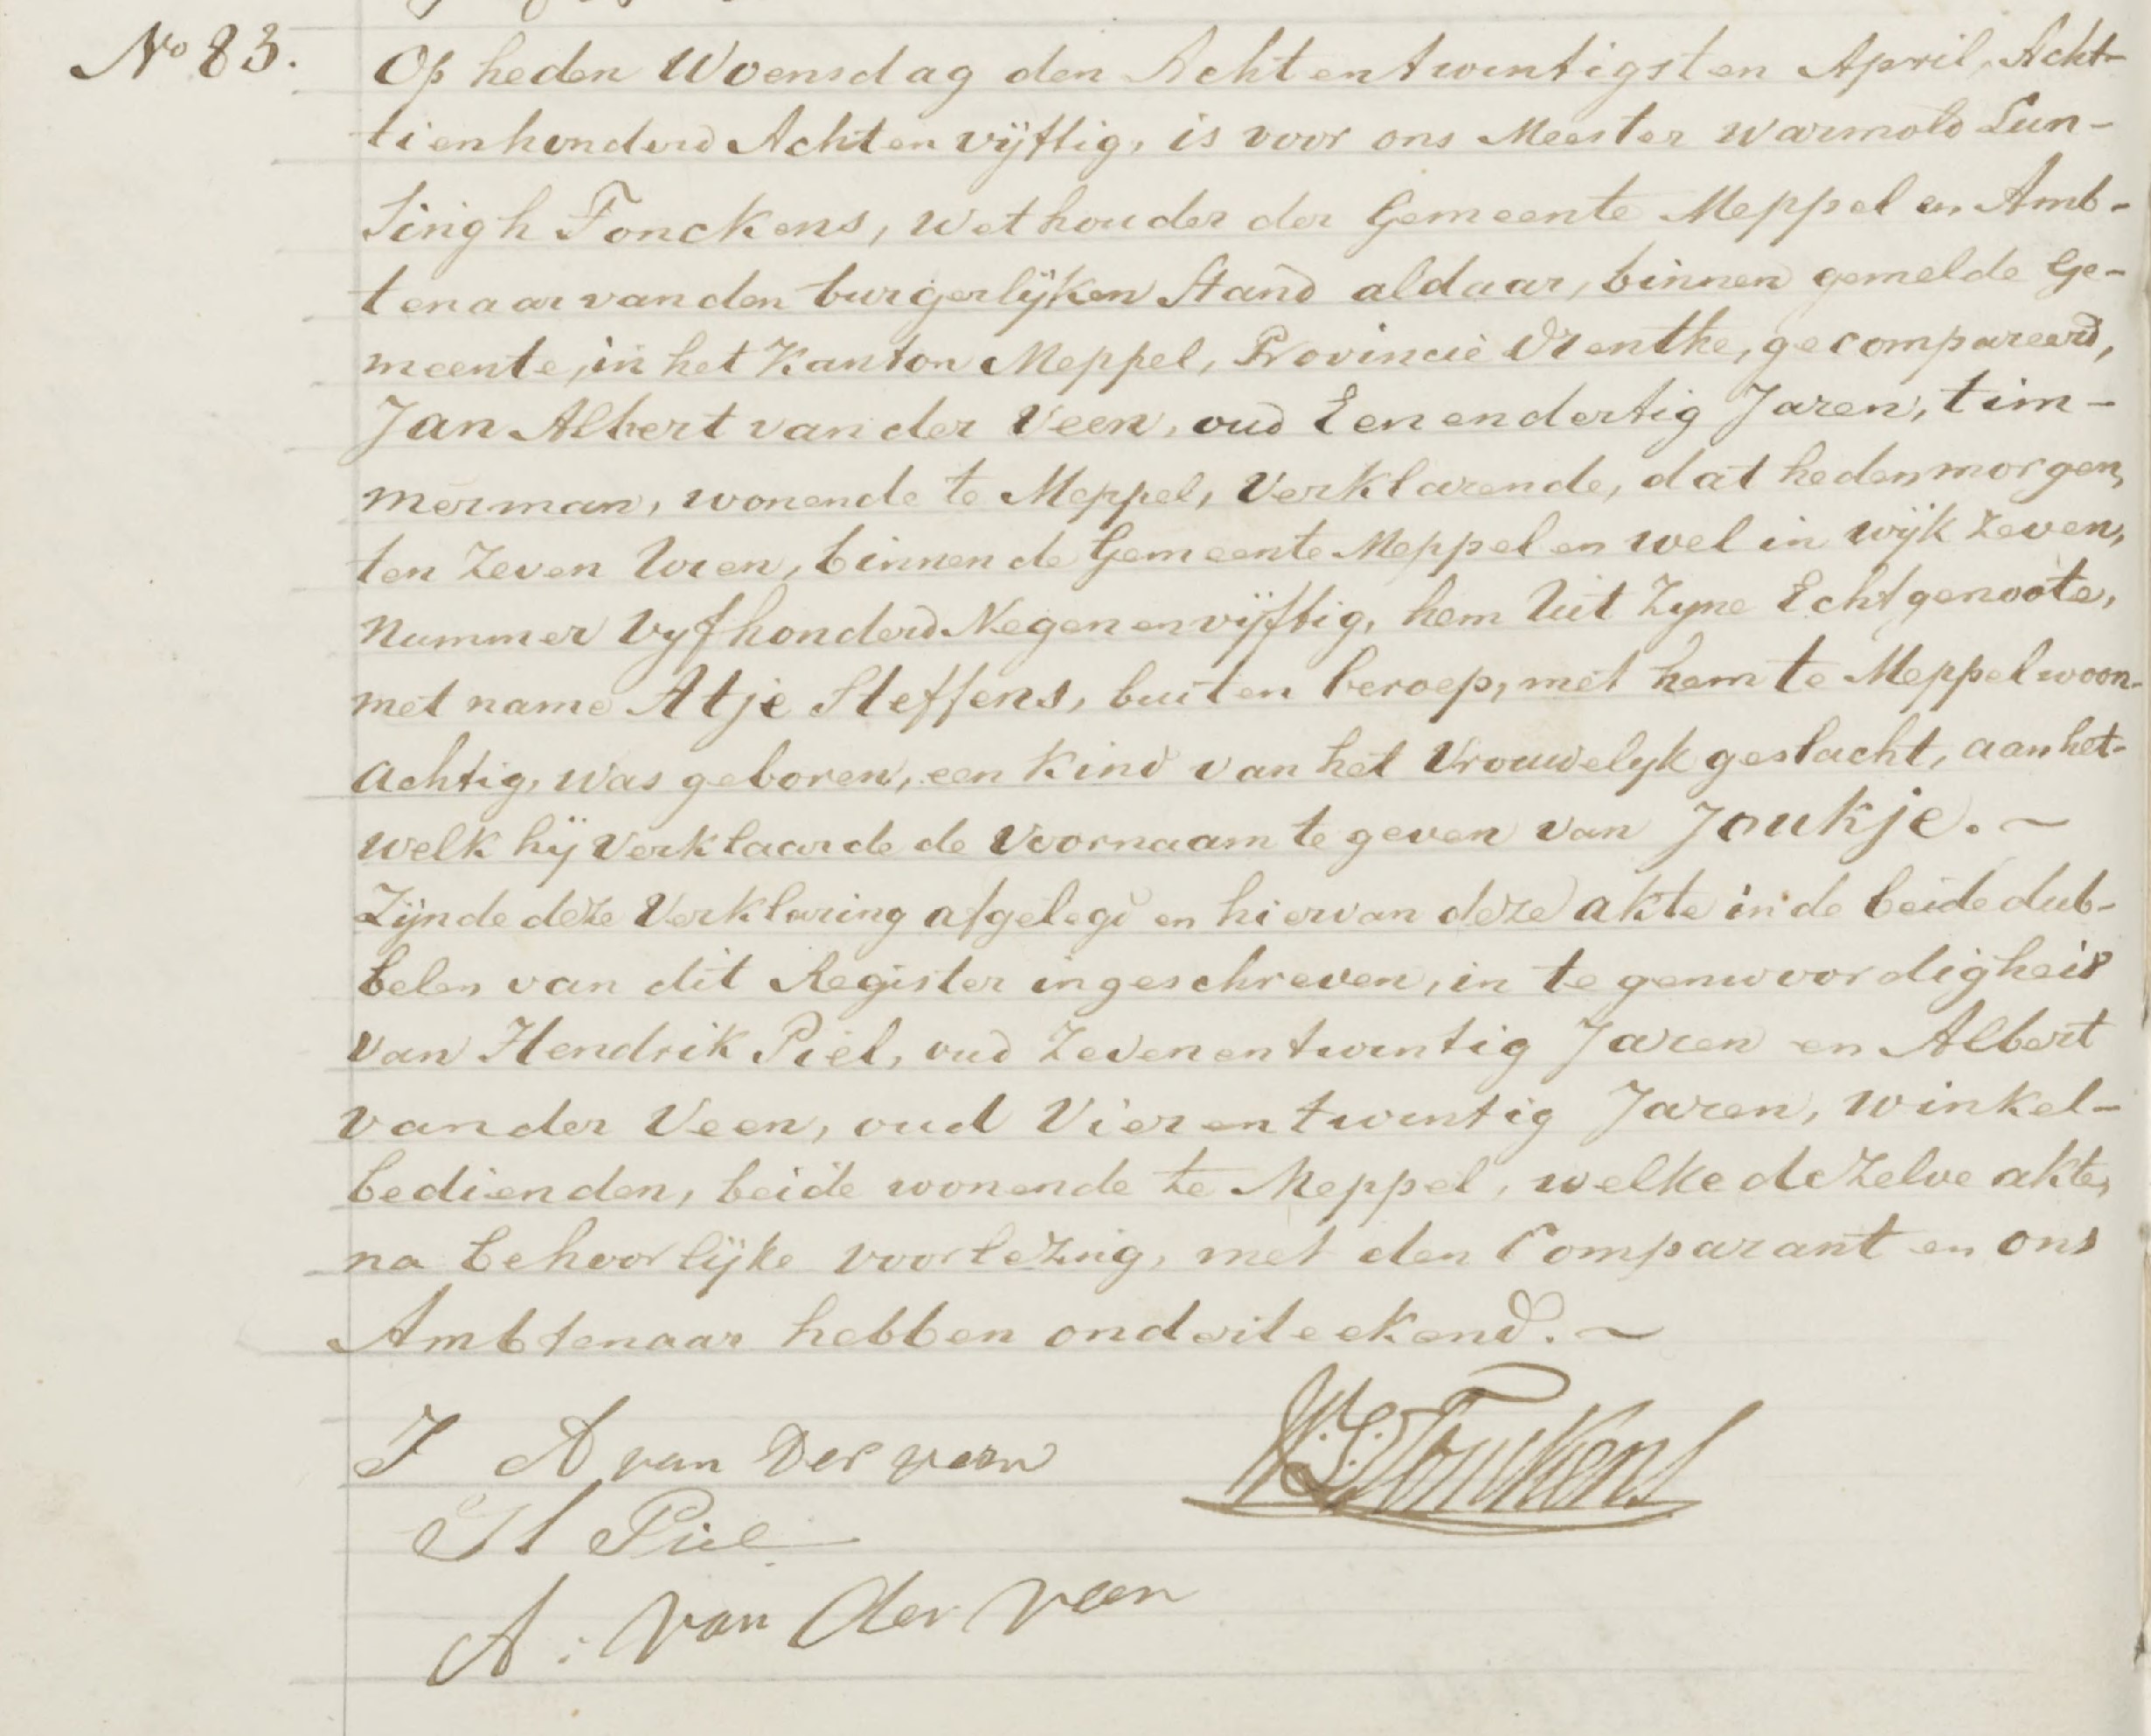 No 83.
Op heden Woensdag den Achtentwintigsten April, Acht-
tienhonderd Achtenvijftig, is voor ons Meester Warmold Lun-
singh Tonckens, Wethouder der Gemeente Meppel en Amb-
tenaar van den burgerlijken Stand aldaar, binnen gemelde Ge-
meente, in het Kanton Meppel, Provincie Drenthe, gecompareerd,
Jan Albert van der Veen, oud Een en dertig Jaren, tim-
merman, wonende te Meppel, Verklarende, dat heden morgen,
ten Zeven Uren, binnen de Gemeente Meppel en wel in wijk Zeven,
Nummer Vyfhonderd Negen en vijftig, hem Uit Zyne Echtgenoote,
met name Atje Steffens, buiten beroep, met hem te Meppel woon-
achtig, Was geboren, een Kind van het Vrouwelyk geslacht, aan het-
welk hij Verklaarde de Voornaam te geven van Joukje. ~
Zijnde deze Verklaring afgelegd en hiervan deze akte in de beide dub-
belen van dit Register ingeschreven, in tegenwoordigheid
van Hendrik Piel, oud Zevenentwintig Jaren en Albert
van der Veen, oud Vierentwintig Jaren, Winkel-
bedienden, beide wonende te Meppel, welke dezelve akte,
na behoorlijke voorlezing, met den Comparant en ons
Ambtenaar hebben onderteekend. ~
J A van Der veen
W.L. Tonckens
H Piel
A: van der Veen